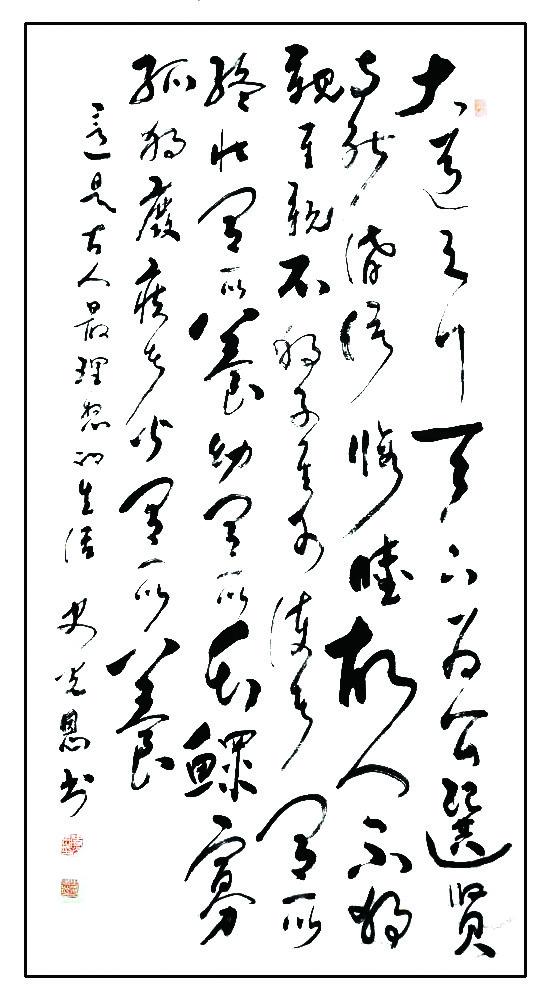 大道之行天下为公選賢
與能講信脩睦故人不獨
親其親不獨子其子使老有所
終壯有所養幼有所长鰥寡
孤獨廢疾者皆有所養
這是古人最理想的生活 史光恩书